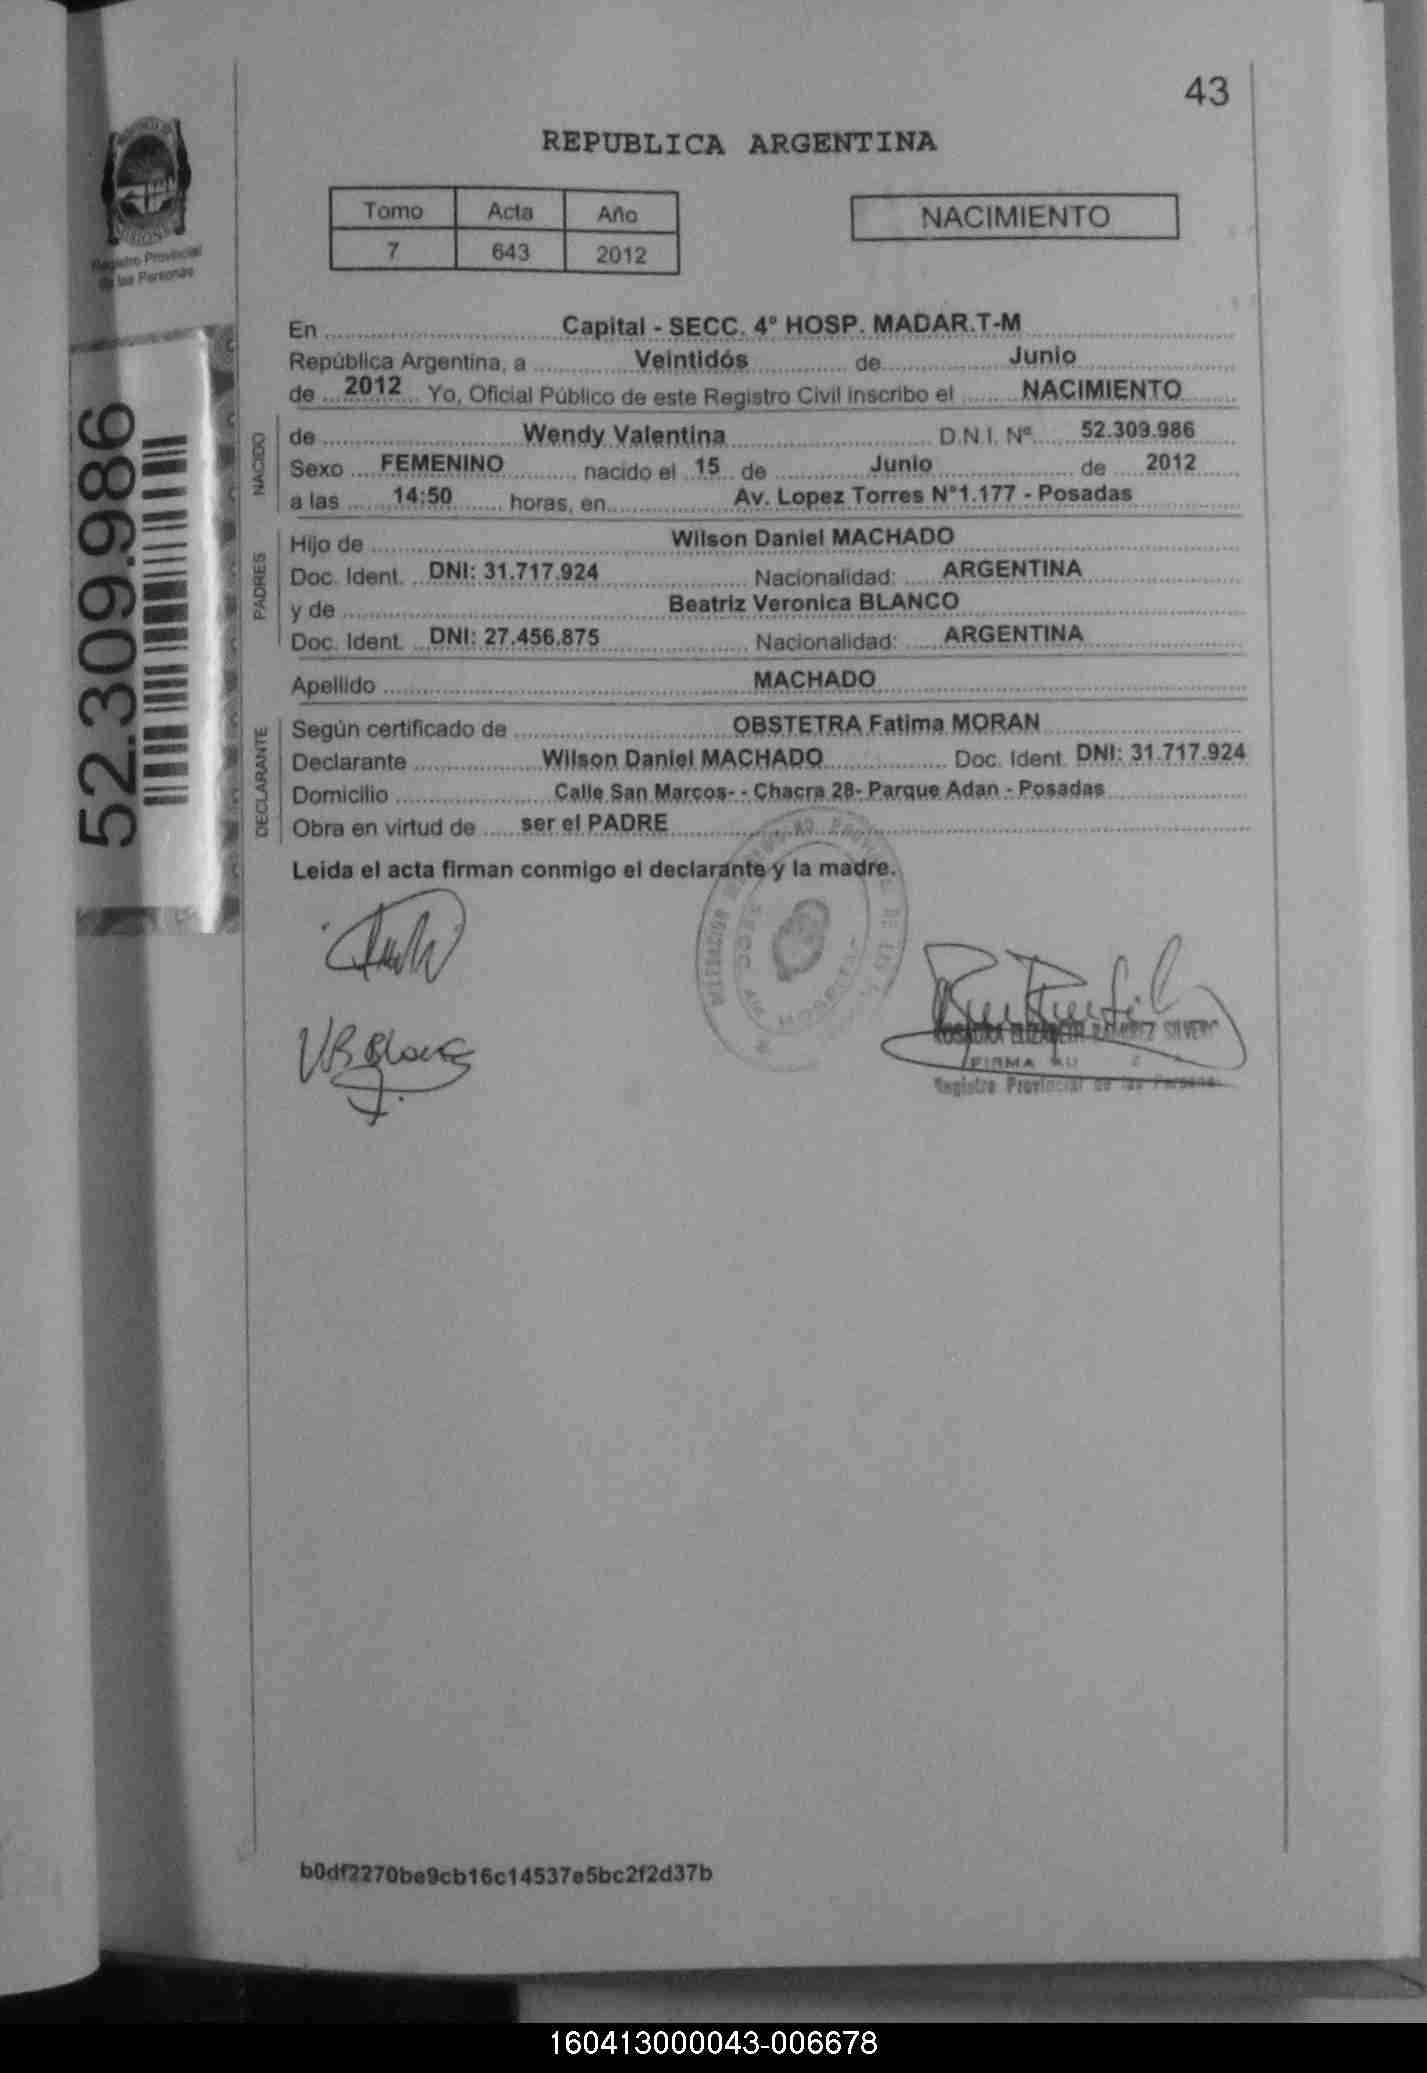 43
REPUBLICA ARGENTINA
Registro Provincial
de las Personas
Tomo Acta Año
7 643 2012
NACIMIENTO
En Capital - SECC. 4º HOSP. MADAR.T-M
República Argentina, a Veintidós de Junio
de 2012 Yo, Oficial Público de este Registro Civil inscribo el NACIMIENTO
NACIDO
de Wendy Valentina D.N.I. Nº 52.309.986
Sexo FEMENINO nacido el 15 de Junio de 2012
a las 14:50 horas, en Av. Lopez Torres N°1.177 - Posadas
PADRES
Hijo de Wilson Daniel MACHADO
Doc. Ident. DNI: 31.717.924 Nacionalidad: ARGENTINA
y de Beatriz Veronica BLANCO
Doc. Ident. DNI: 27.456.875 Nacionalidad: ARGENTINA
Apellido MACHADO
DECLARANTE
Según certificado de OBSTETRA Fatima MORAN
Declarante Wilson Daniel MACHADO Doc. Ident. DNI: 31.717.924
Domicilio Calle San Marcos- - Chacra 28- Parque Adan - Posadas
Obra en virtud de ser el PADRE
Leida el acta firman conmigo el declarante y la madre.
52.309.986
VB Blanco
ROSAURA ELIZABETH RAMIREZ SILVERO
FIRMA
Registro Provincial de las Personas
b0df2270be9cb16c14537e5bc2f2d37b
160413000043-006678